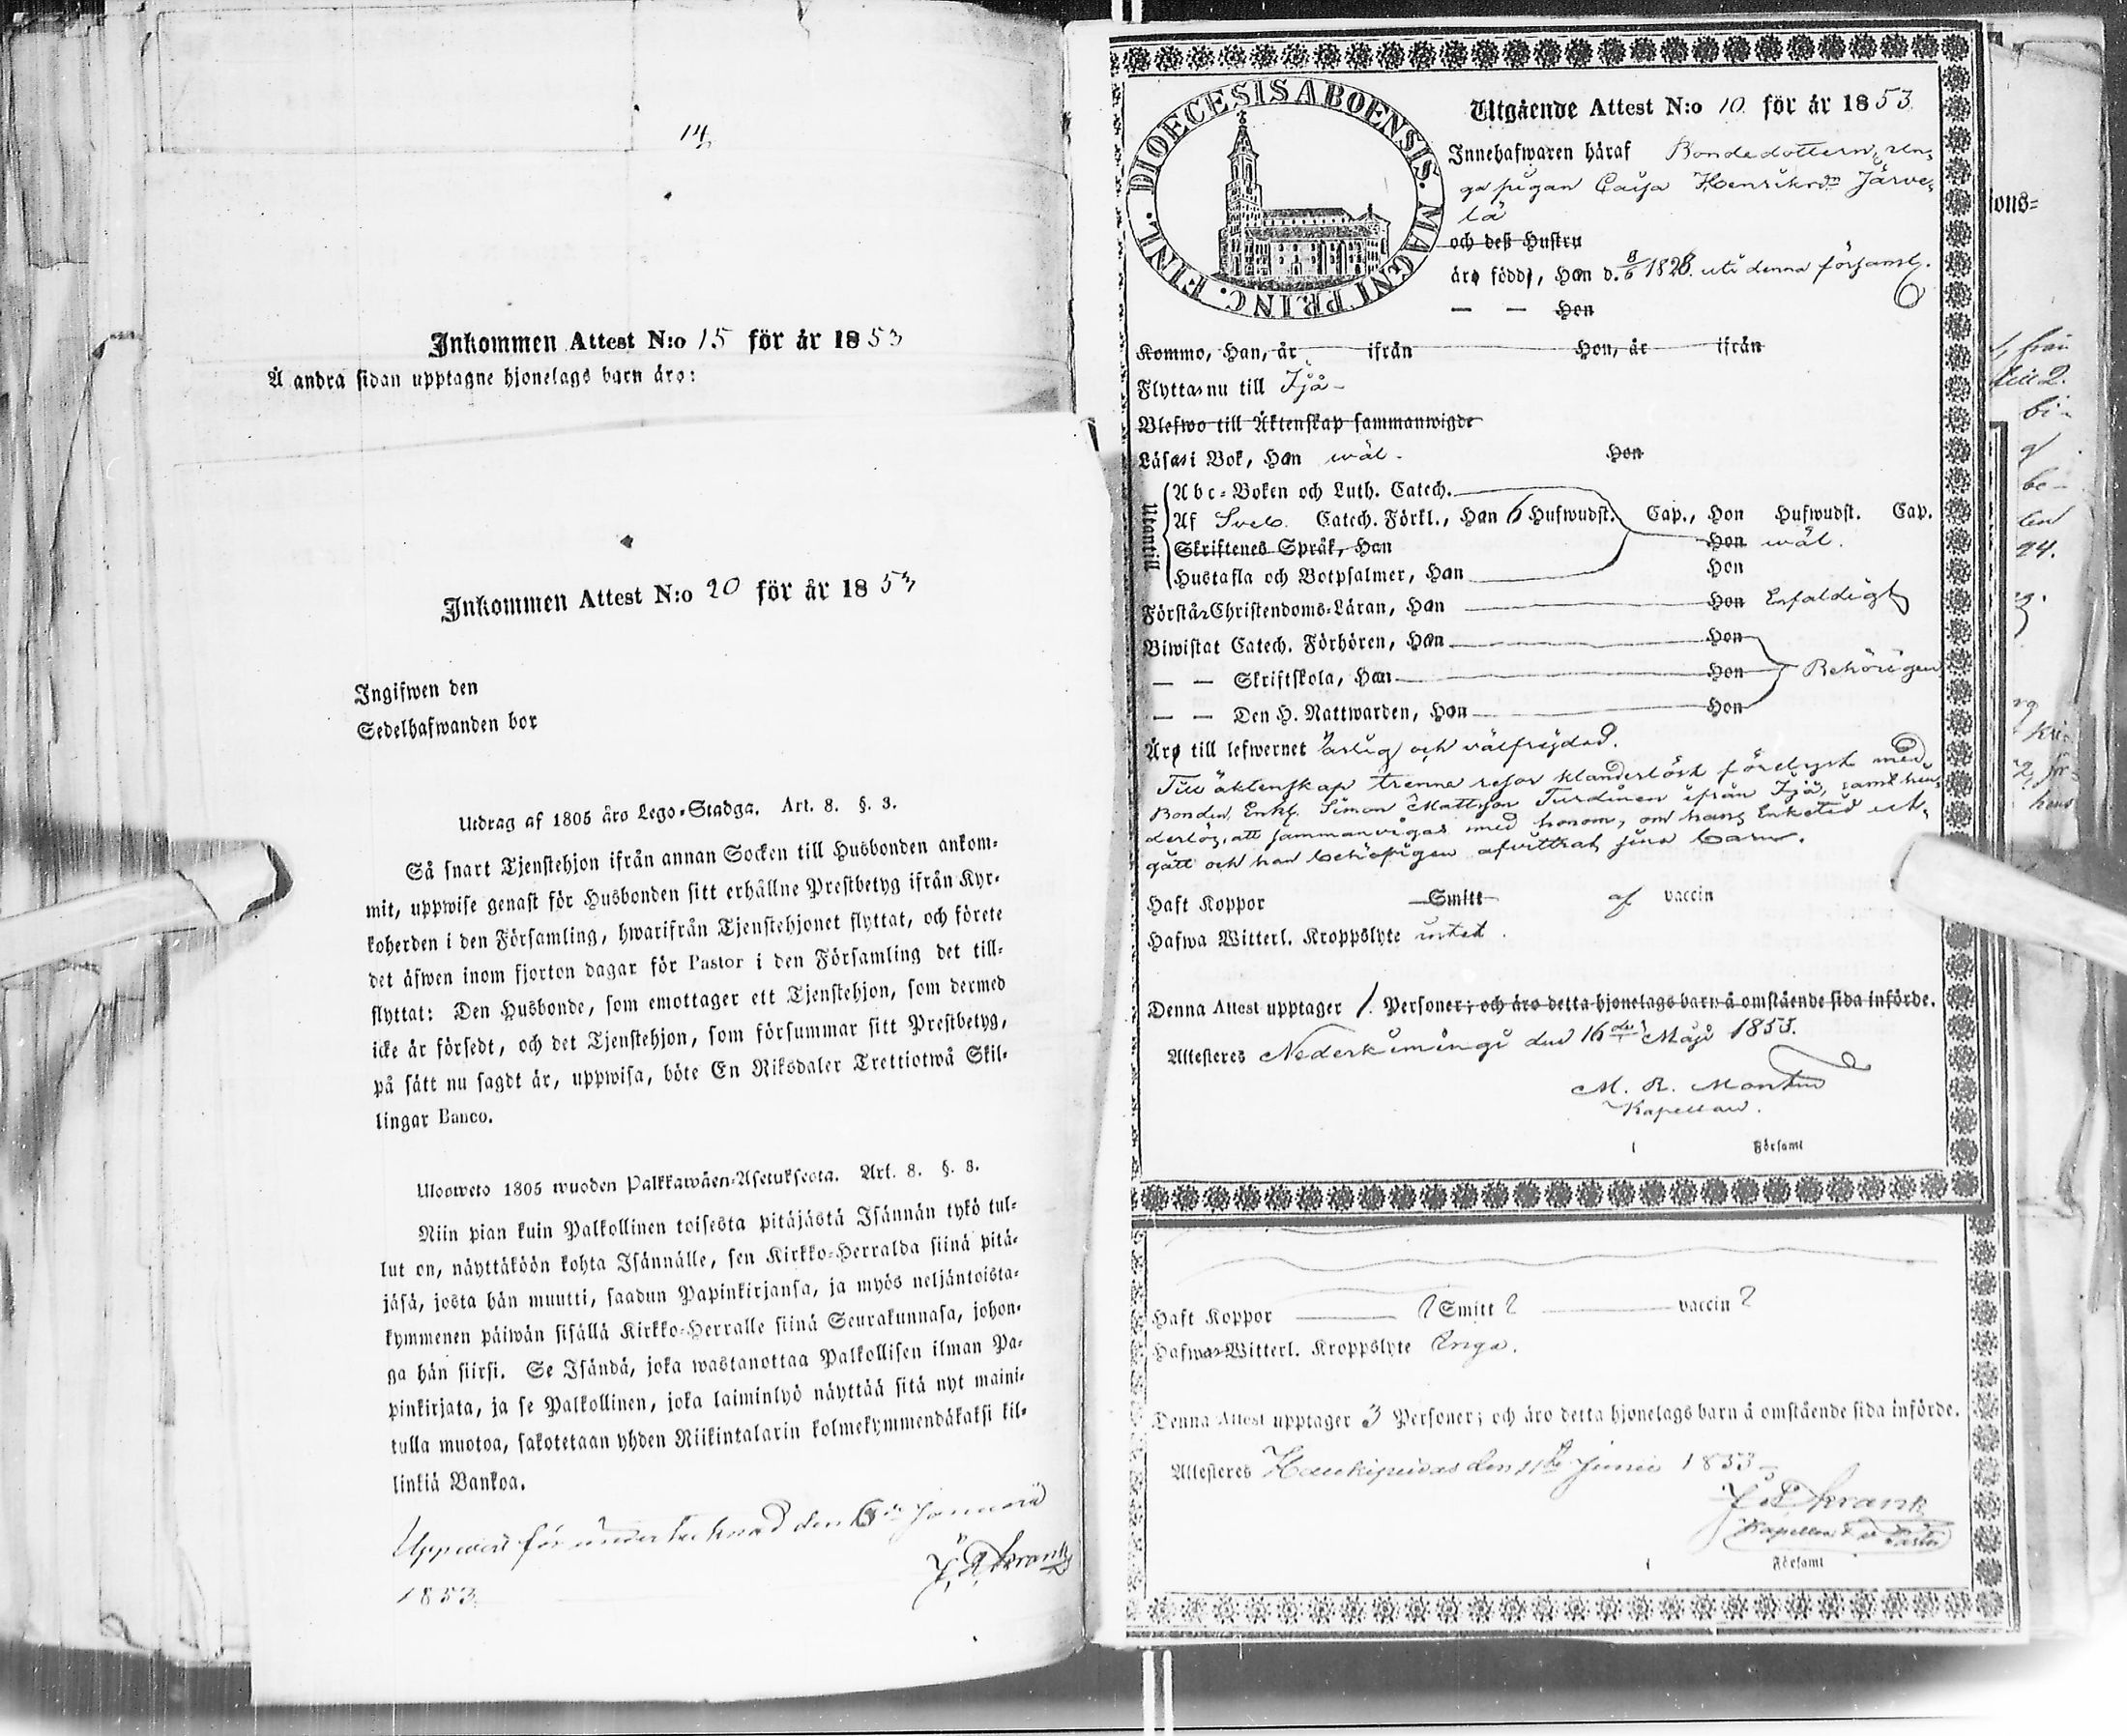 14
Inkommen Attest N:o 15 för år 1853
Å andra sidan upptagne hjonelags barn äro:
Inkommen Attest N:o 20 för år 1853
Ingifwen den
Sedelhafwanden bor
Utdrag af 1805 års Lego-Stadga. Art. 8. §. 3.
Så snart Tjenstehjon ifrån annan Socken till Husbonden ankom-
mit, uppwise genast för Husbonden sitt erhållne Prestbetyg ifrån Kyr-
koherden i den Församling, hwarifrån Tjenstehjonet flyttat, och förete
det äfwen inom fjorton dagar för Pastor i den Församling det till-
flyttat: Den Husbonde, som emottager ett Tjenstehjon, som dermed
icke är försedt, och det Tjenstehjon, som försummar sitt Prestbetyg,
på sätt nu sagdt är, uppwisa, böte En Riksdaler Trettiotwå Skil-
lingar Banco.
Ulosweto 1805 wuoden Palkkawäen-Asetuksesta. Art. 8. §. 3.
Niin pian kuin Palkollinen toisesta pitäjästä Isännän tykö tul-
lut on, näyttäköön kohta Isännälle, sen Kirkko-Herralda siinä pitä-
jäsä, josta hän muutti, saadun Papinkirjansa, ja myös neljäntoista-
kymmenen päiwän sisällä Kirkko-Herralle siinä Seurakunnasa, johon-
ga hän siirsi. Se Isändä, joka wastanottaa Palkollisen ilman Pa-
pinkirjata, ja se Palkollinen, joka laiminlyö näyttää sitä nyt maini-
tulla muotoa, sakotetaan yhden Riikintalarin kolmekymmendäkaksi kil-
linkiä Bankoa.
Uppwist för undertecknad den 6 Januari
1853.
DIOECESIS ABOENSIS. MAGNI PRINC. FINL.
Utgående Attest N:o 10 för år 1853
Innehafwaren häraf Bondedottern, un-
ga pigan Caisa Henriksdr Järve-
lä
och deß Hustru
äro född, Han d. 8/6 1828. uti denna församl.
— — Hon
Kommo, Han, år ifrån Hon, år ifrån
Flyttas nu till Ijå
Blefwo till Äktenskap sammanwigde
Läsas i Bok, Han wäl. Hon
Utantill
Abc-Boken och Luth. Catech.
Af Sveb. Catech. Förkl., Han 6 Hufwudst. Cap., Hon Hufwudst. Cap.
Skriftenes Språk, Han Hon wäl.
Hustafla och Botpsalmer, Han Hon
Förstår Christendoms-Läran, Han Hon Enfaldigt
Biwistat Catech. Förhören, Han Hon
— — Skriftskola, Han Hon Behörigen
— — Den H. Nattwarden, Han Hon
Äro till lefwernet ärlig och välfrejdad.
Till äktenskap trenne resor klanderlöst förelyst med
Bonden, Enkl. Simon Mattsson Turdinen ifrån Ijå, samt hin-
derlös, att sammanvigas med honom, om hans Enketid ut-
gått och han behörigen afvittrat sina barn.
Haft Koppor Smitt af vaccin
Hafwa Witterl. Kroppslyte intet.
Denna Attest upptager 1. Personer; och äro detta hjonelags barn å omstående sida införde.
Attesteres Nederkiimingi den 16de Maji 1853.
M. R.
Kapellan.
i Församl
Haft Koppor ? Smitt ? vaccin ?
Hafwa Witterl. Kroppslyte Inga.
Denna Attest upptager 3 Personer; och äro detta hjonelags barn å omstående sida införde.
Attesteres Haukipudas den 11te Junii 1853
Kapellan
i Församl